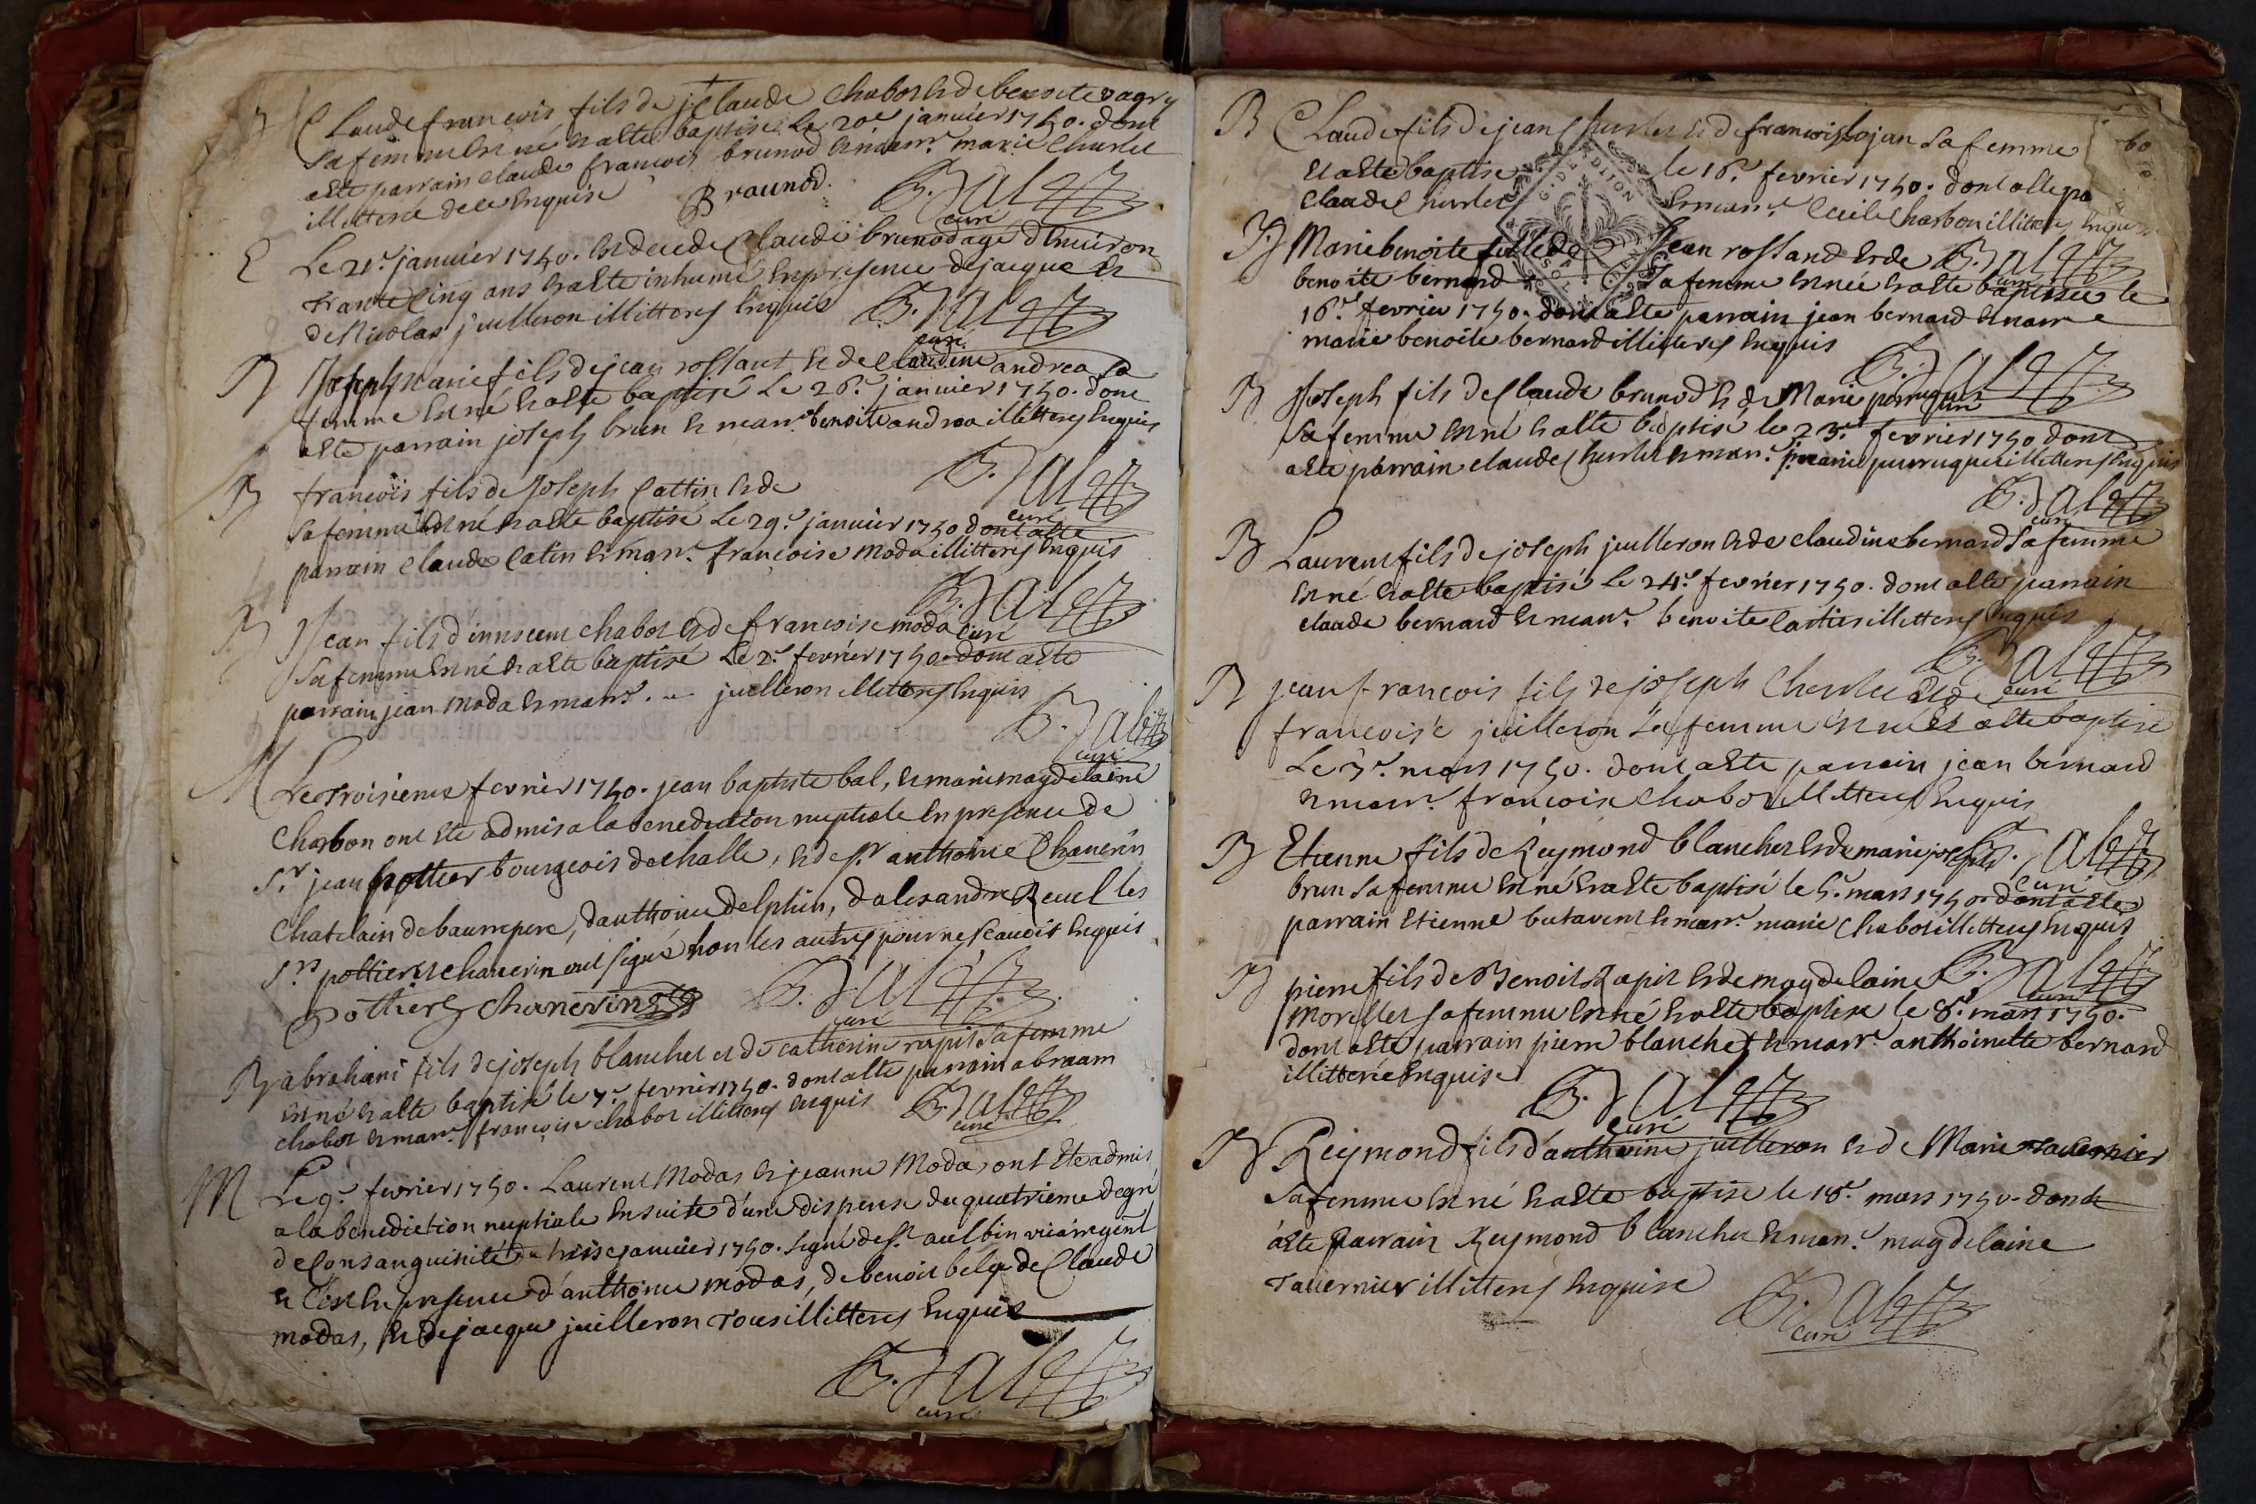 B Claude francois fils de j Claude Chabot & de benoite vagry
sa femme est né & a esté baptisé le 20e janvier 1750. dont
a esté parrain claude francois brunod & marr.e marie Churlet
illitteré de ce enquise Braunod.
B. Bal
curé
E Le 21e janvier 1750. est decedé Claude brunod agé d'environ
trante cinq ans & a esté inhumé en presence de jacque &
de Nicolas juilleron illitterés enquis
B. Bal
curé
B Joseph marie fils de jean rossant & de claudine andrea sa
femme est né & a esté baptisé le 26e janvier 1750. dont
a esté parrain joseph brun & marr.e benoite andrea illitterés enquis
B. Bal
curé
B francois fils de Joseph Cattin & de
sa femme est né & a esté baptisé le 29e janvier 1750 dont a esté
parrain claude Catin & marr.e francoise moda illitterés enquis
B. Bal
curé
B Jean fils d'innocent chabot & de francoise moda
sa femme est né & a esté baptisé le 2e fevrier 1750. dont a esté
parrain jean moda & marr.e juilleron illitterés enquis
B. Bal
curé
M Le troisieme fevrier 1750. jean baptiste bal, & marie magdelaine
Charbon ont eté admis a la benediction nuptiale en presence de
S.r jean pottier bourgeois de challe, & de s.r anthoine Chanerin
Chatelain de beaurepere, d'anthoine delphin, d'alexandre Revel les
S.rs pottier & chanerin ont signé non les autres pour ne scavoir enquis
Pottier Chanerin
B. Bal
curé
B abraham fils de joseph blanchet et de catherine rapit sa femme
est né & a esté baptisé le 7e fevrier 1750. dont a esté parrain abraam
chabot & marr.e francoise chabot illitterés enquis
B. Bal
curé
M Le 9e fevrier 1750. Laurent Modas & jeanne Moda ont eté admis
a la benediction nuptiale ensuite d'une dispense du quatrieme degré
de Consanguinité du treise janvier 1750. signé de s.r aulbin vicaire regent
& c'est en presence d'anthoine modas, de benoit belge de Claude
modas, & de jacque juilleron tous illitterés enquis
B. Bal
curé
B Claude fils de jean Churlet & de francoise lojan sa femme
& a esté baptisé le 16e fevrier 1750. dont a esté pa
Claude Churlet & marr.e Cecile Charbon illitterés enquis
G. DE. DIJON
B. Bal
curé
B Marie benoite fille de Jean rossand & de
benoite bernard sa femme est née & a esté baptisée le
16e fevrier 1750. dont a esté parrain jean bernard & marr.e
marie benoite bernard illitterés enquis
B. Bal
curé
B Joseph fils de Claude brunod & de Marie perruquet
sa femme est né & a esté baptisé le 23e fevrier 1750 dont
a esté parrain claude Churlet & marr.e marie perruquet illitterés enquis
B. Bal
curé
B Laurent fils de joseph juilleron & de claudine bernard sa femme
est né & a esté baptisé le 24e fevrier 1750. dont a esté parrain
claude bernard & marr.e benoite Cartier illitterés enquis
B. Bal
curé
B jean francois fils de joseph Churlet & de
francoise juilleron sa femme est né & a esté baptisé
Le 3e mars 1750. dont a esté parrain jean bernard
& marr.e francoise Chabot illitterés enquis
B. Bal
curé
B Etienne fils de Reymond blanchet & de marie josephe
brun sa femme est né & a esté baptisé le 5e mars 1750 dont a esté
parrain Etienne butavent & marr.e marie Chabot illitterés enquis
B. Bal
curé
B pierre fils de Benoit Rapit & de magdelaine
Morellet sa femme est né & a esté baptisé le 8e mars 1750.
dont a esté parrain pierre blanchet & marr.e anthoinette bernard
illitteré enquise
B. Bal
curé
B Reymond fils d'anthoine juilleron & de Marie tavernier
sa femme est né & a esté baptisé le 18e mars 1750. dont
a esté parrain Reymond blanchet & marr.e magdelaine
tavernier illitterés enquise
B. Bal
curé